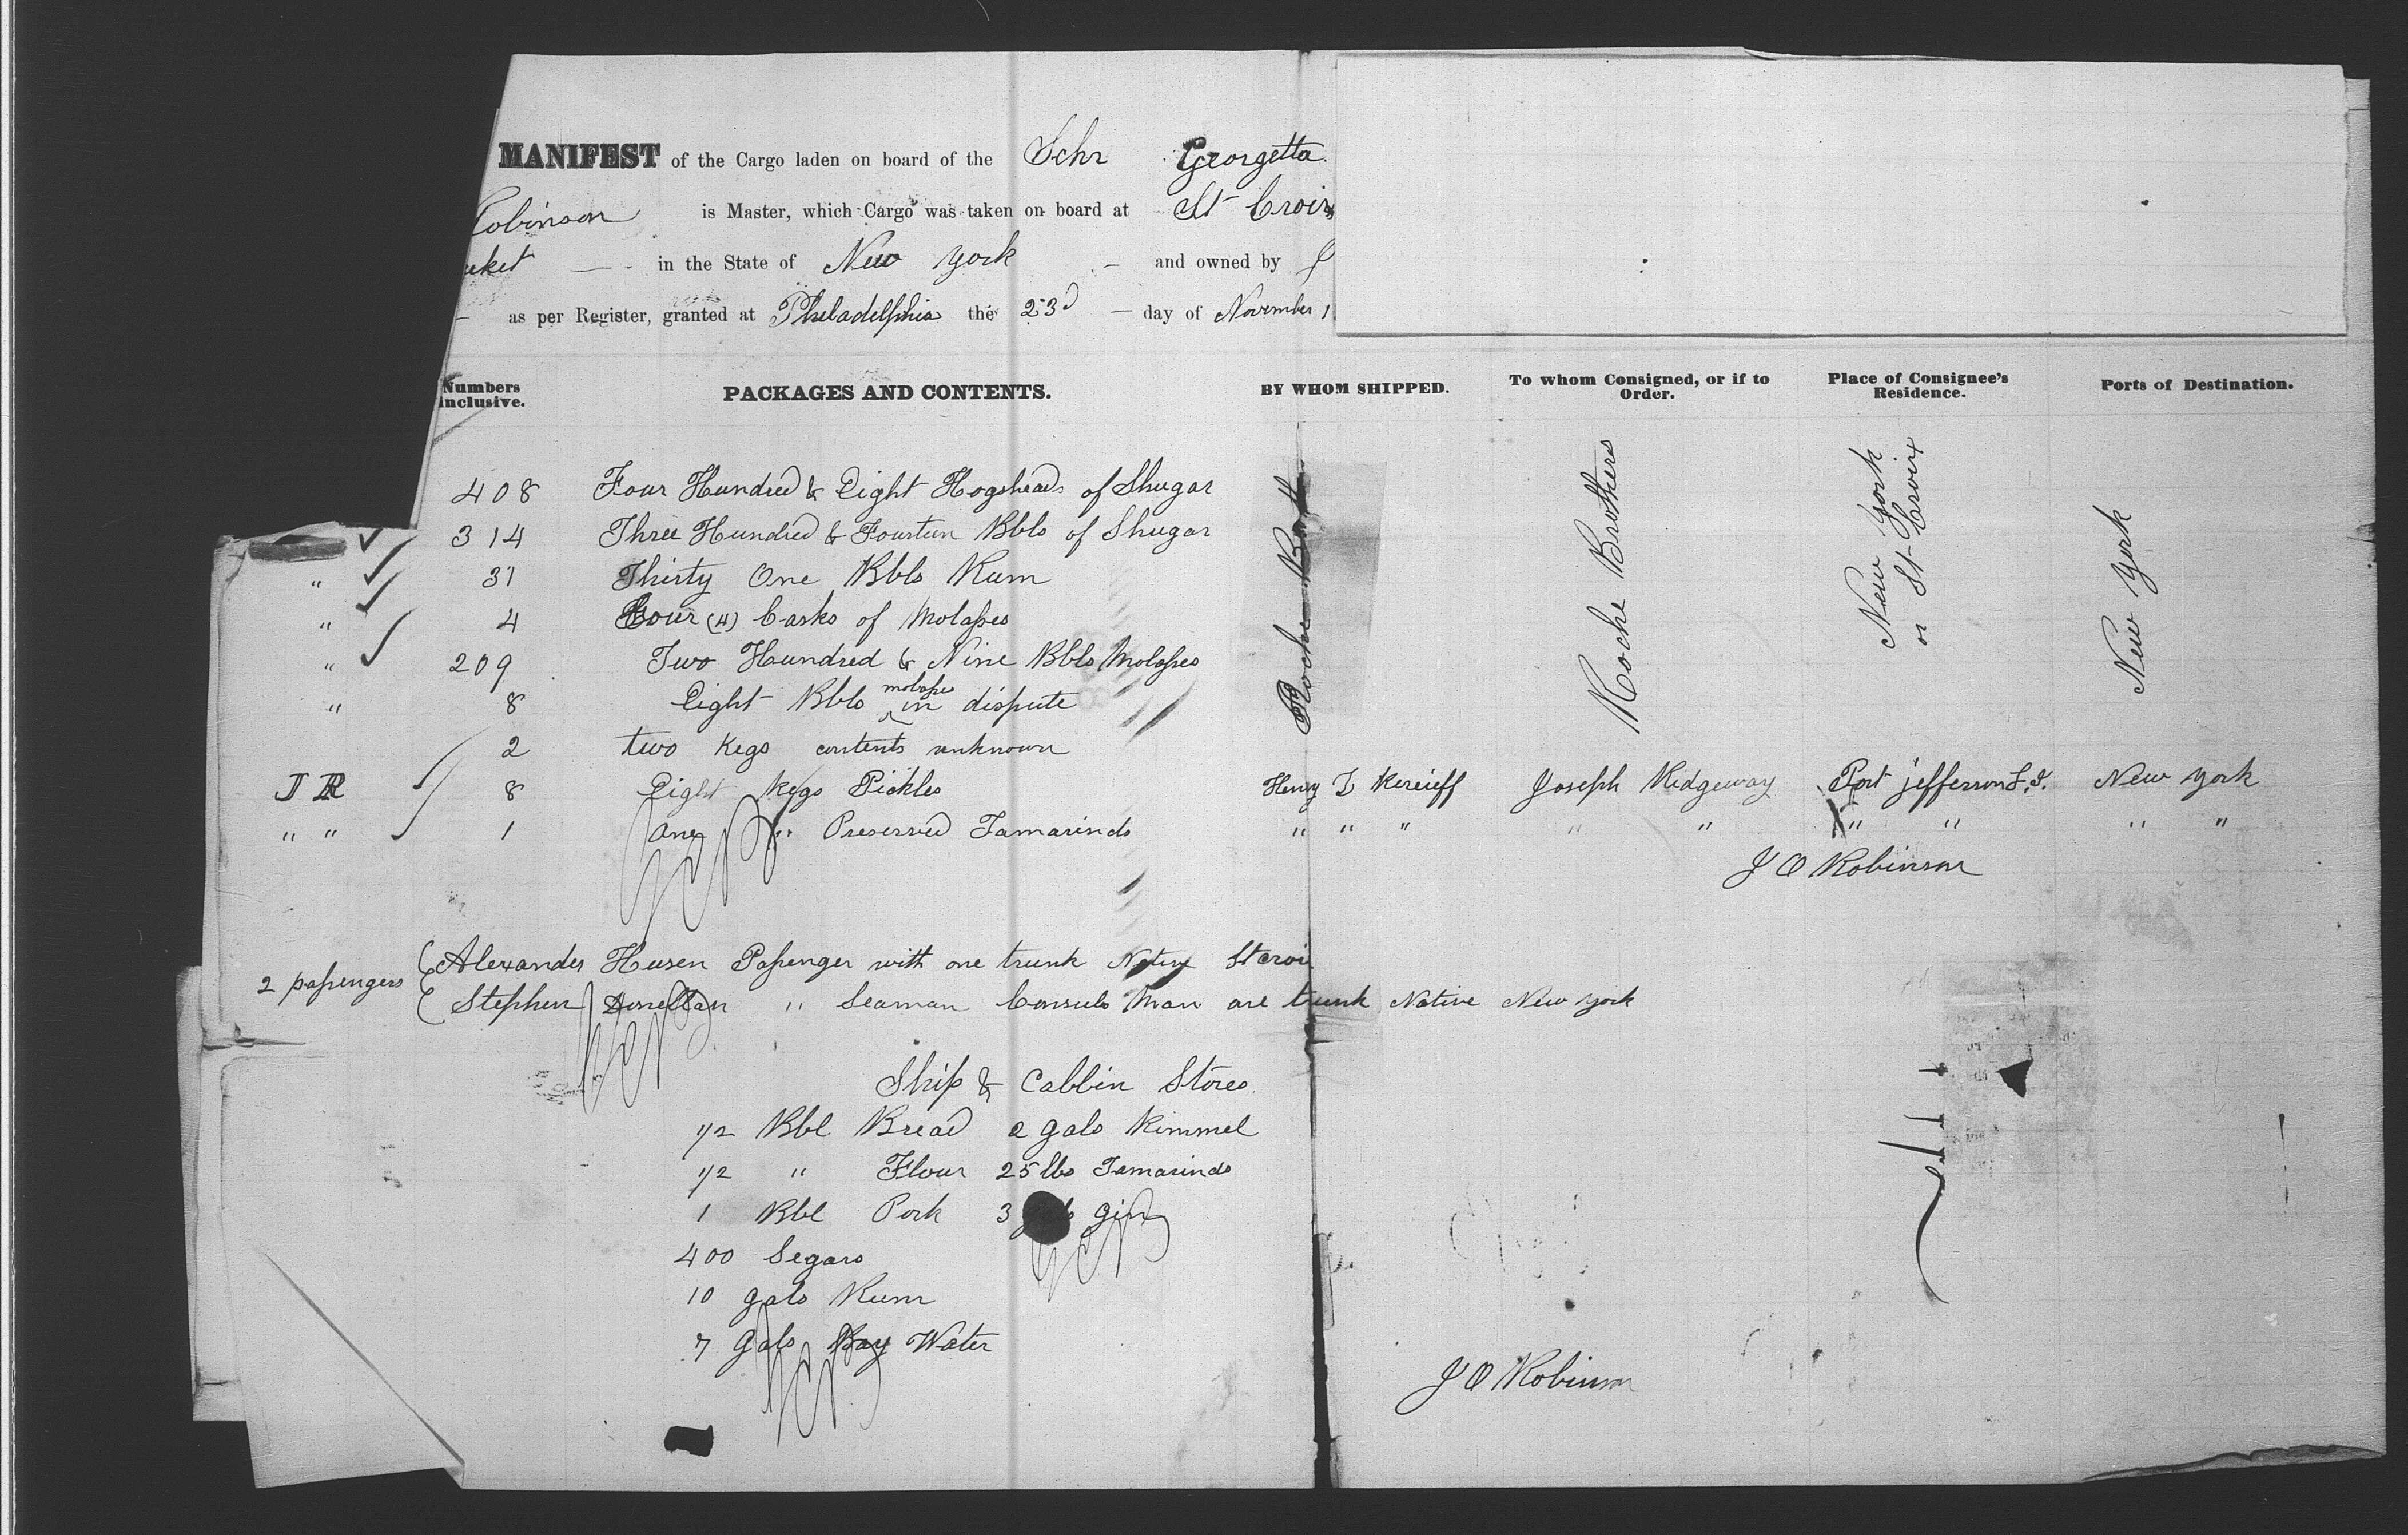 MANIFEST of the Cargo laden on board of the Schr Georgetta
Robinson is Master, which Cargo was taken on board at St Croix
uket in the State of New York and owned by
as per Register, granted at Philadelphia the 23d day of November 1
Numbers inclusive. PACKAGES AND CONTENTS. BY WHOM SHIPPED. To whom Consigned, or if to Order. Place of Consignee's Residence. Ports of Destination.
408 Four Hundred & Eight Hogsheads of Shugar
314 Three Hundred & Fourteen Bbls of Shugar
" 31 Thirty One Bbls Rum
" 4 Four (4) Casks of Molasses
" 209 Two Hundred & Nine Bbls Molasses
" 8 Eight Bbls molasses in dispute
2 two Kegs contents unknown
Roche Brothers
New York
or St Croix
New York
J R 8 Eight kegs Pickles Henry Joseph Ridgeway Port jefferson L.I. New York
" " 1 One " Preserved Tamarinds " " " " " " " " "
J O Robinson
2 passengers
Alexander Husen Passenger with one trunk Native St Croi
Stephen Donellan " Seaman Consuls Man one trunk Native New York
Ship & Cabbin Stores
1/2 Bbl Bread 2 gals Kimmel
1/2 " Flour 25 lbs Tamarinds
1 Bbl Pork 3 gin
400 Segars
10 gals Rum
7 gals Bay Water
J O Robinson